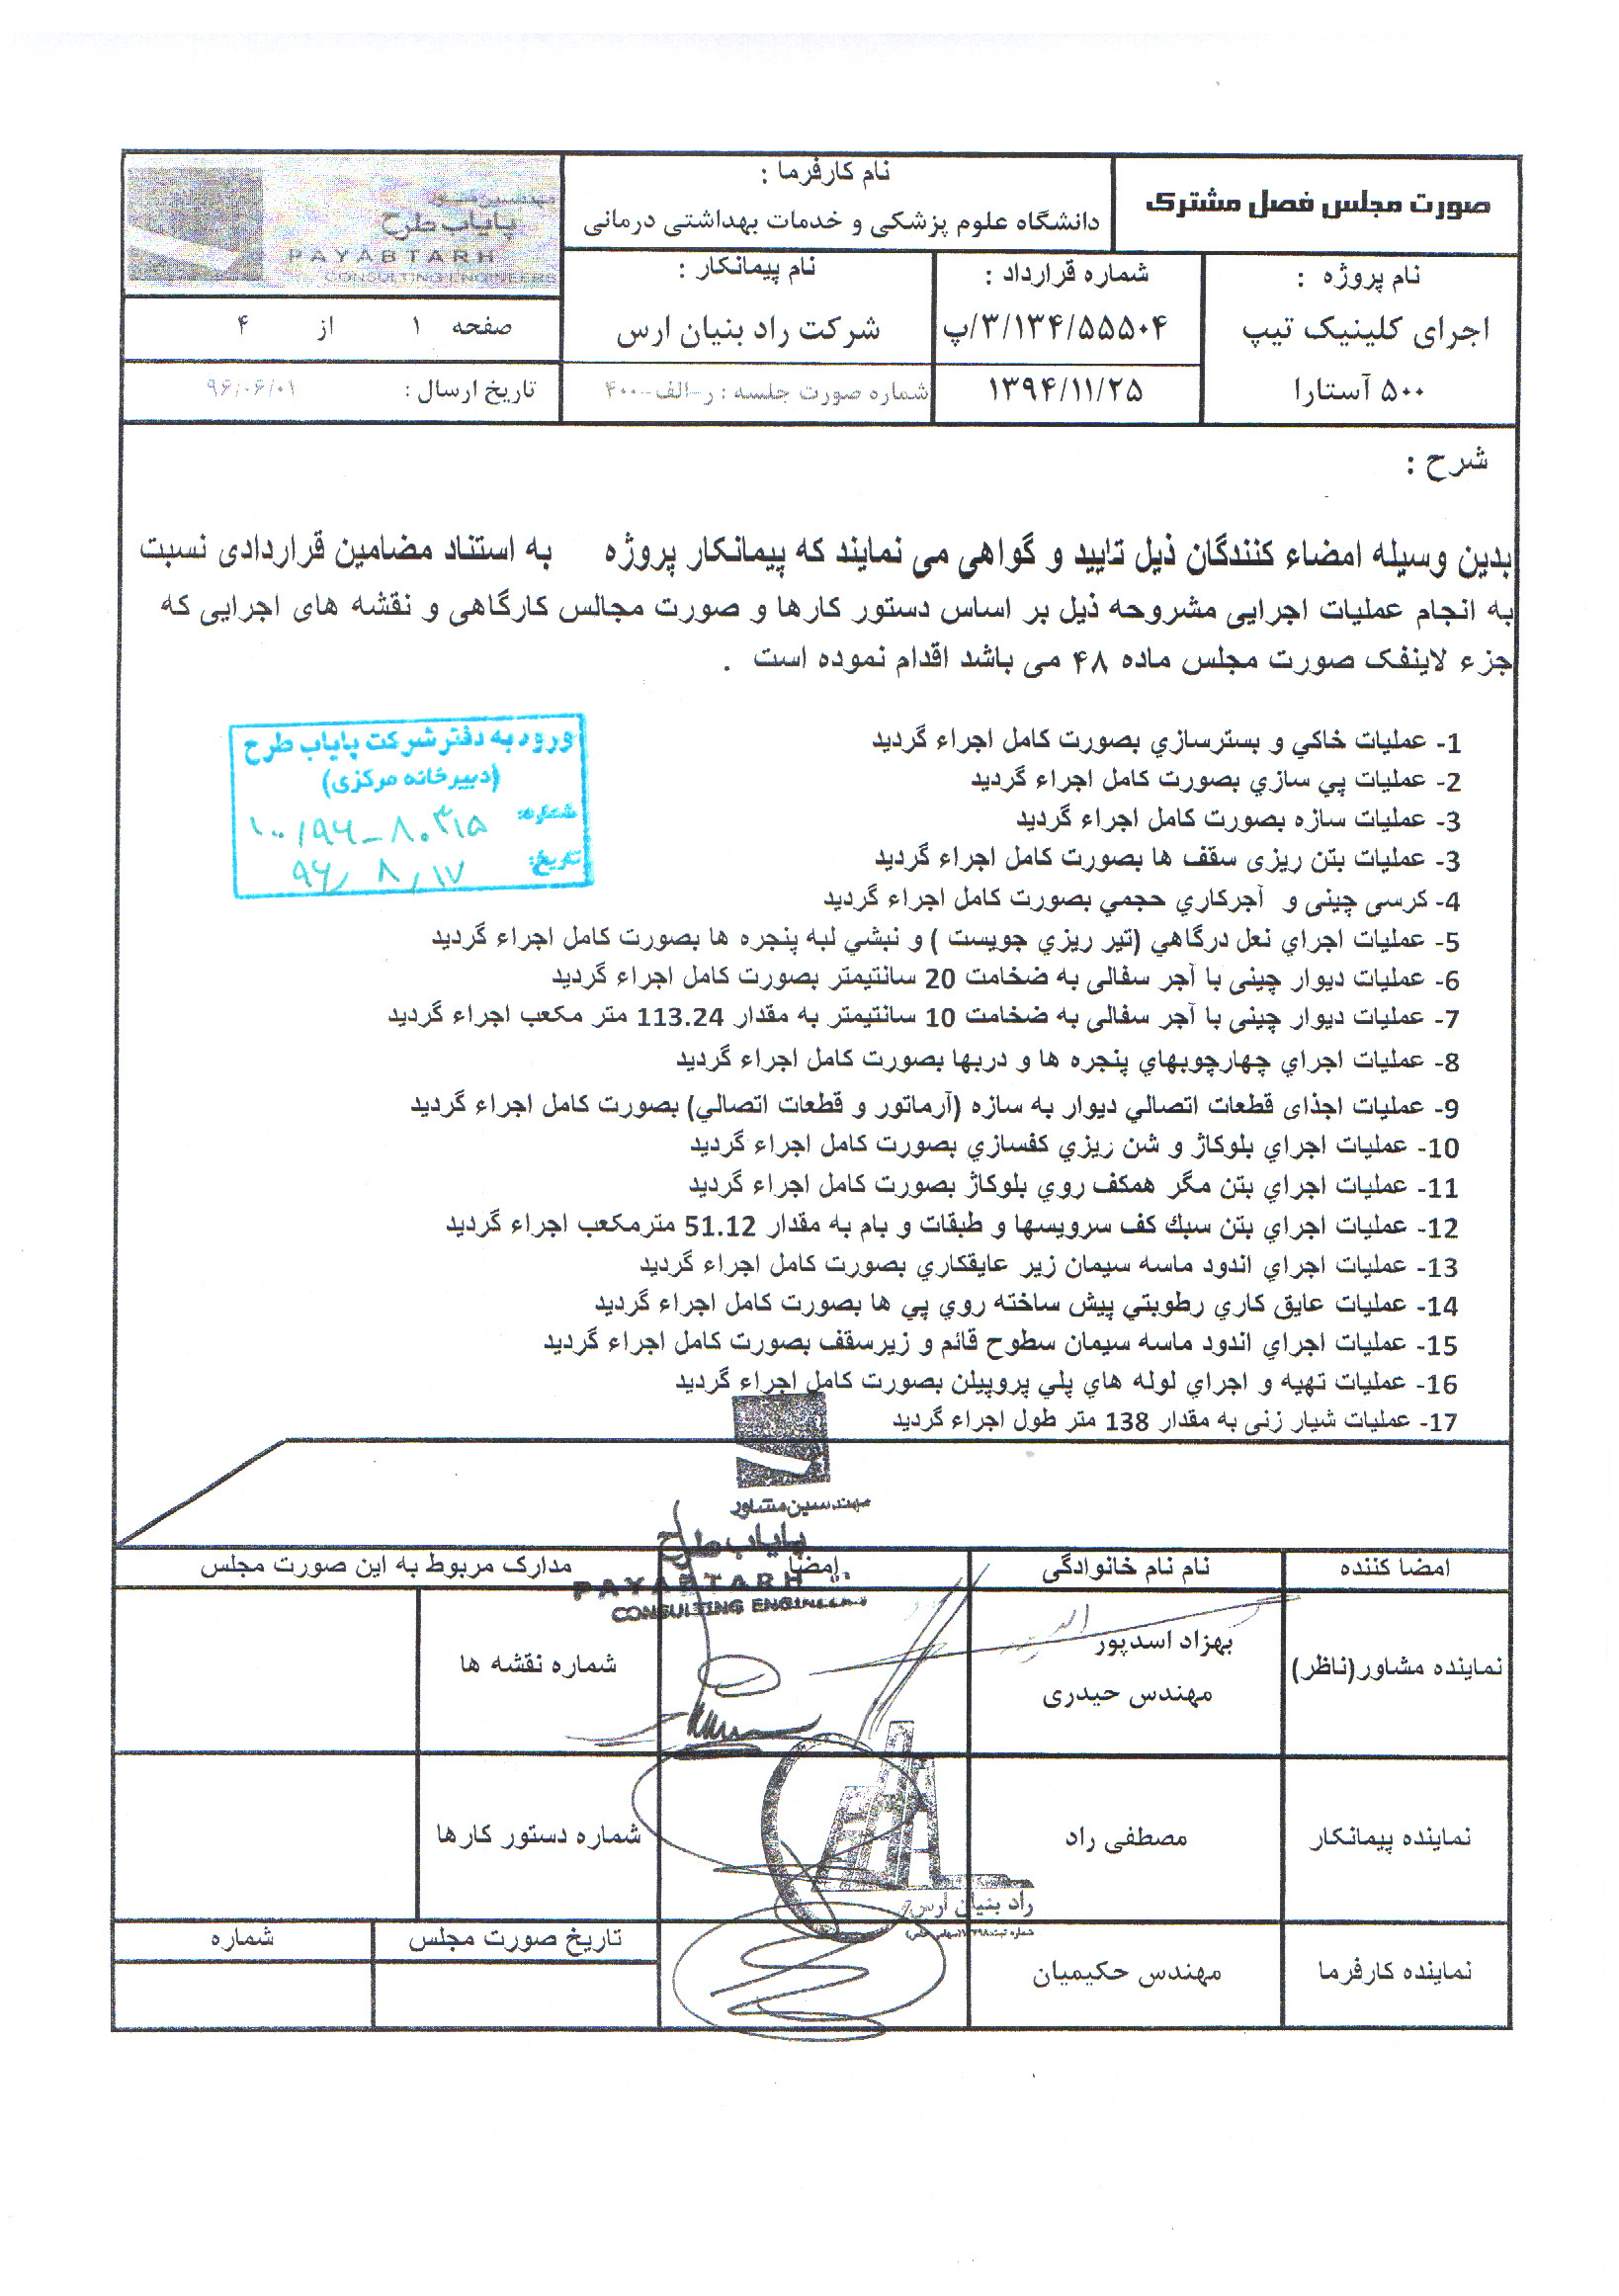 صورت مجلس فصل مشترک
نام کارفرما :
دانشگاه علوم پزشکی و خدمات بهداشتی درمانی
پایاب طرح
PAYABTARH
CONSULTING ENGINEERS
نام پروژه :
اجرای کلینیک تیپ
۵۰۰ آستارا
شماره قرارداد :
۳/۱۳۴/۵۵۵۰۴/پ
۱۳۹۴/۱۱/۲۵
نام پیمانکار :
شرکت راد بنیان ارس
شماره صورت جلسه : ر-الف-۴۰۰
صفحه ۱ از ۴
تاریخ ارسال : ۹۶/۰۶/۰۱
شرح :
بدین وسیله امضاء کنندگان ذیل تایید و گواهی می نمایند که پیمانکار پروژه به استناد مضامین قراردادی نسبت
به انجام عملیات اجرایی مشروحه ذیل بر اساس دستور کارها و صورت مجالس کارگاهی و نقشه های اجرایی که
جزء لاینفک صورت مجلس ماده ۴۸ می باشد اقدام نموده است .
ورود به دفتر شرکت پایاب طرح
(دبیرخانه مرکزی)
شماره: ۱۰۰/۹۶-۸۰۳۱۵
تاریخ: ۹۶/۸/۱۷
1- عملیات خاکي و بسترسازي بصورت کامل اجراء گردید
2- عملیات پي سازي بصورت کامل اجراء گردید
3- عملیات سازه بصورت کامل اجراء گردید
3- عملیات بتن ریزی سقف ها بصورت کامل اجراء گردید
4- کرسی چینی و آجرکاري حجمي بصورت کامل اجراء گردید
5- عملیات اجراي نعل درگاهي (تیر ریزي جویست ) و نبشي لبه پنجره ها بصورت کامل اجراء گردید
6- عملیات دیوار چینی با آجر سفالی به ضخامت 20 سانتیمتر بصورت کامل اجراء گردید
7- عملیات دیوار چینی با آجر سفالی به ضخامت 10 سانتیمتر به مقدار 113.24 متر مکعب اجراء گردید
8- عملیات اجراي چهارچوبهاي پنجره ها و دربها بصورت کامل اجراء گردید
9- عملیات اجذای قطعات اتصالي دیوار به سازه (آرماتور و قطعات اتصالي) بصورت کامل اجراء گردید
10- عملیات اجراي بلوکاژ و شن ریزي کفسازي بصورت کامل اجراء گردید
11- عملیات اجراي بتن مگر همکف روي بلوکاژ بصورت کامل اجراء گردید
12- عملیات اجراي بتن سبك کف سرویسها و طبقات و بام به مقدار 51.12 مترمکعب اجراء گردید
13- عملیات اجراي اندود ماسه سیمان زیر عایقکاري بصورت کامل اجراء گردید
14- عملیات عایق کاري رطوبتي پیش ساخته روي پي ها بصورت کامل اجراء گردید
15- عملیات اجراي اندود ماسه سیمان سطوح قائم و زیرسقف بصورت کامل اجراء گردید
16- عملیات تهیه و اجراي لوله هاي پلي پروپیلن بصورت کامل اجراء گردید
17- عملیات شیار زنی به مقدار 138 متر طول اجراء گردید
مهندسین مشاور
پایاب طرح
PAYABTARH
CONSULTING ENGINEERS
امضا کننده
نام نام خانوادگی
امضا
مدارک مربوط به این صورت مجلس
نماینده مشاور(ناظر)
بهزاد اسدپور
مهندس حیدری
شماره نقشه ها
نماینده پیمانکار
مصطفی راد
شماره دستور کارها
راد بنیان ارس
نماینده کارفرما
مهندس حکیمیان
تاریخ صورت مجلس
شماره